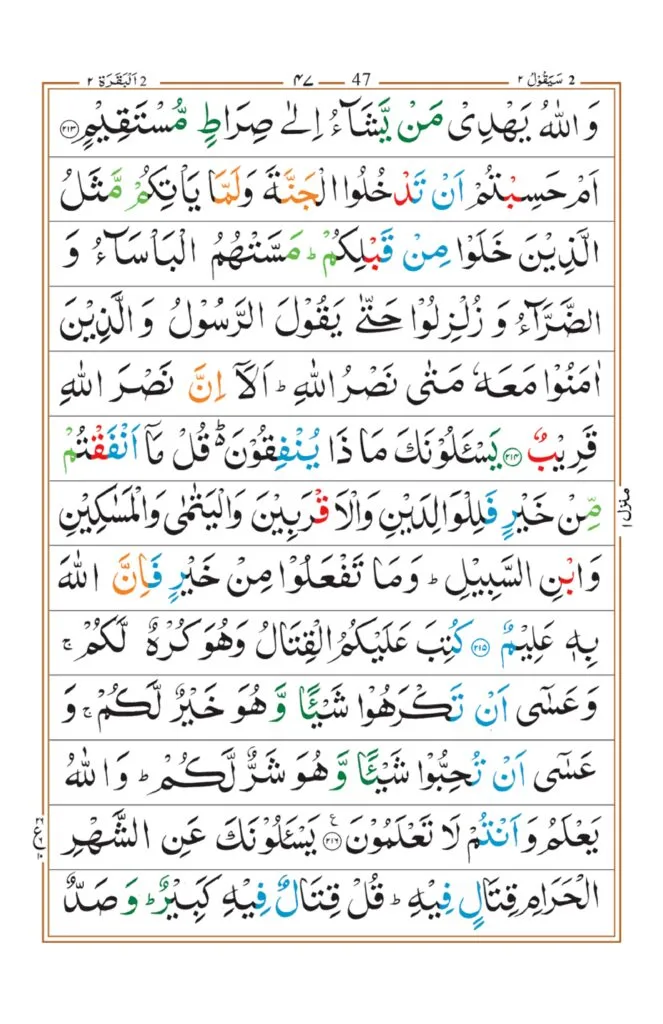 2 سَيَقُوْلُ ٢ 47 ٤٧ 2 اَلْبَقَرَة ٢
وَ اللّٰهُ يَهْدِىْ مَنْ يَّشَآءُ اِلٰى صِرَاطٍ مُّسْتَقِيْمٍ ﴿٢١٣﴾
اَمْ حَسِبْتُمْ اَنْ تَدْخُلُوا الْجَنَّةَ وَلَمَّا يَاْتِكُمْ مَّثَلُ
الَّذِيْنَ خَلَوْا مِنْ قَبْلِكُمْ ؕ مَسَّتْهُمُ الْبَاْسَآءُ وَ
الضَّرَّآءُ وَ زُلْزِلُوْا حَتّٰى يَقُوْلَ الرَّسُوْلُ وَ الَّذِيْنَ
اٰمَنُوْا مَعَهٗ مَتٰى نَصْرُ اللّٰهِ ؕ اَلَاۤ اِنَّ نَصْرَ اللّٰهِ
قَرِيْبٌ ﴿٢١٤﴾ يَسْـَٔلُوْنَكَ مَا ذَا يُنْفِقُوْنَ ؕ قُلْ مَاۤ اَنْفَقْتُمْ
مِّنْ خَيْرٍ فَلِلْوَالِدَيْنِ وَالْاَقْرَبِيْنَ وَالْيَتٰمٰى وَالْمَسٰكِيْنِ
وَابْنِ السَّبِيْلِ ؕ وَمَا تَفْعَلُوْا مِنْ خَيْرٍ فَاِنَّ اللّٰهَ
بِهٖ عَلِيْمٌ ﴿٢١٥﴾ كُتِبَ عَلَيْكُمُ الْقِتَالُ وَهُوَ كُرْهٌ لَّكُمْ ۚ
وَعَسٰٓى اَنْ تَكْرَهُوْا شَيْـًٔا وَّ هُوَ خَيْرٌ لَّكُمْ ۚ وَ
عَسٰٓى اَنْ تُحِبُّوْا شَيْـًٔا وَّ هُوَ شَرٌّ لَّكُمْ ؕ وَ اللّٰهُ
يَعْلَمُ وَ اَنْتُمْ لَا تَعْلَمُوْنَ ﴿٢١٦﴾ ع يَسْـَٔلُوْنَكَ عَنِ الشَّهْرِ
الْحَرَامِ قِتَالٍ فِيْهِ ؕ قُلْ قِتَالٌ فِيْهِ كَبِيْرٌ ؕ وَ صَدٌّ
منزل ١